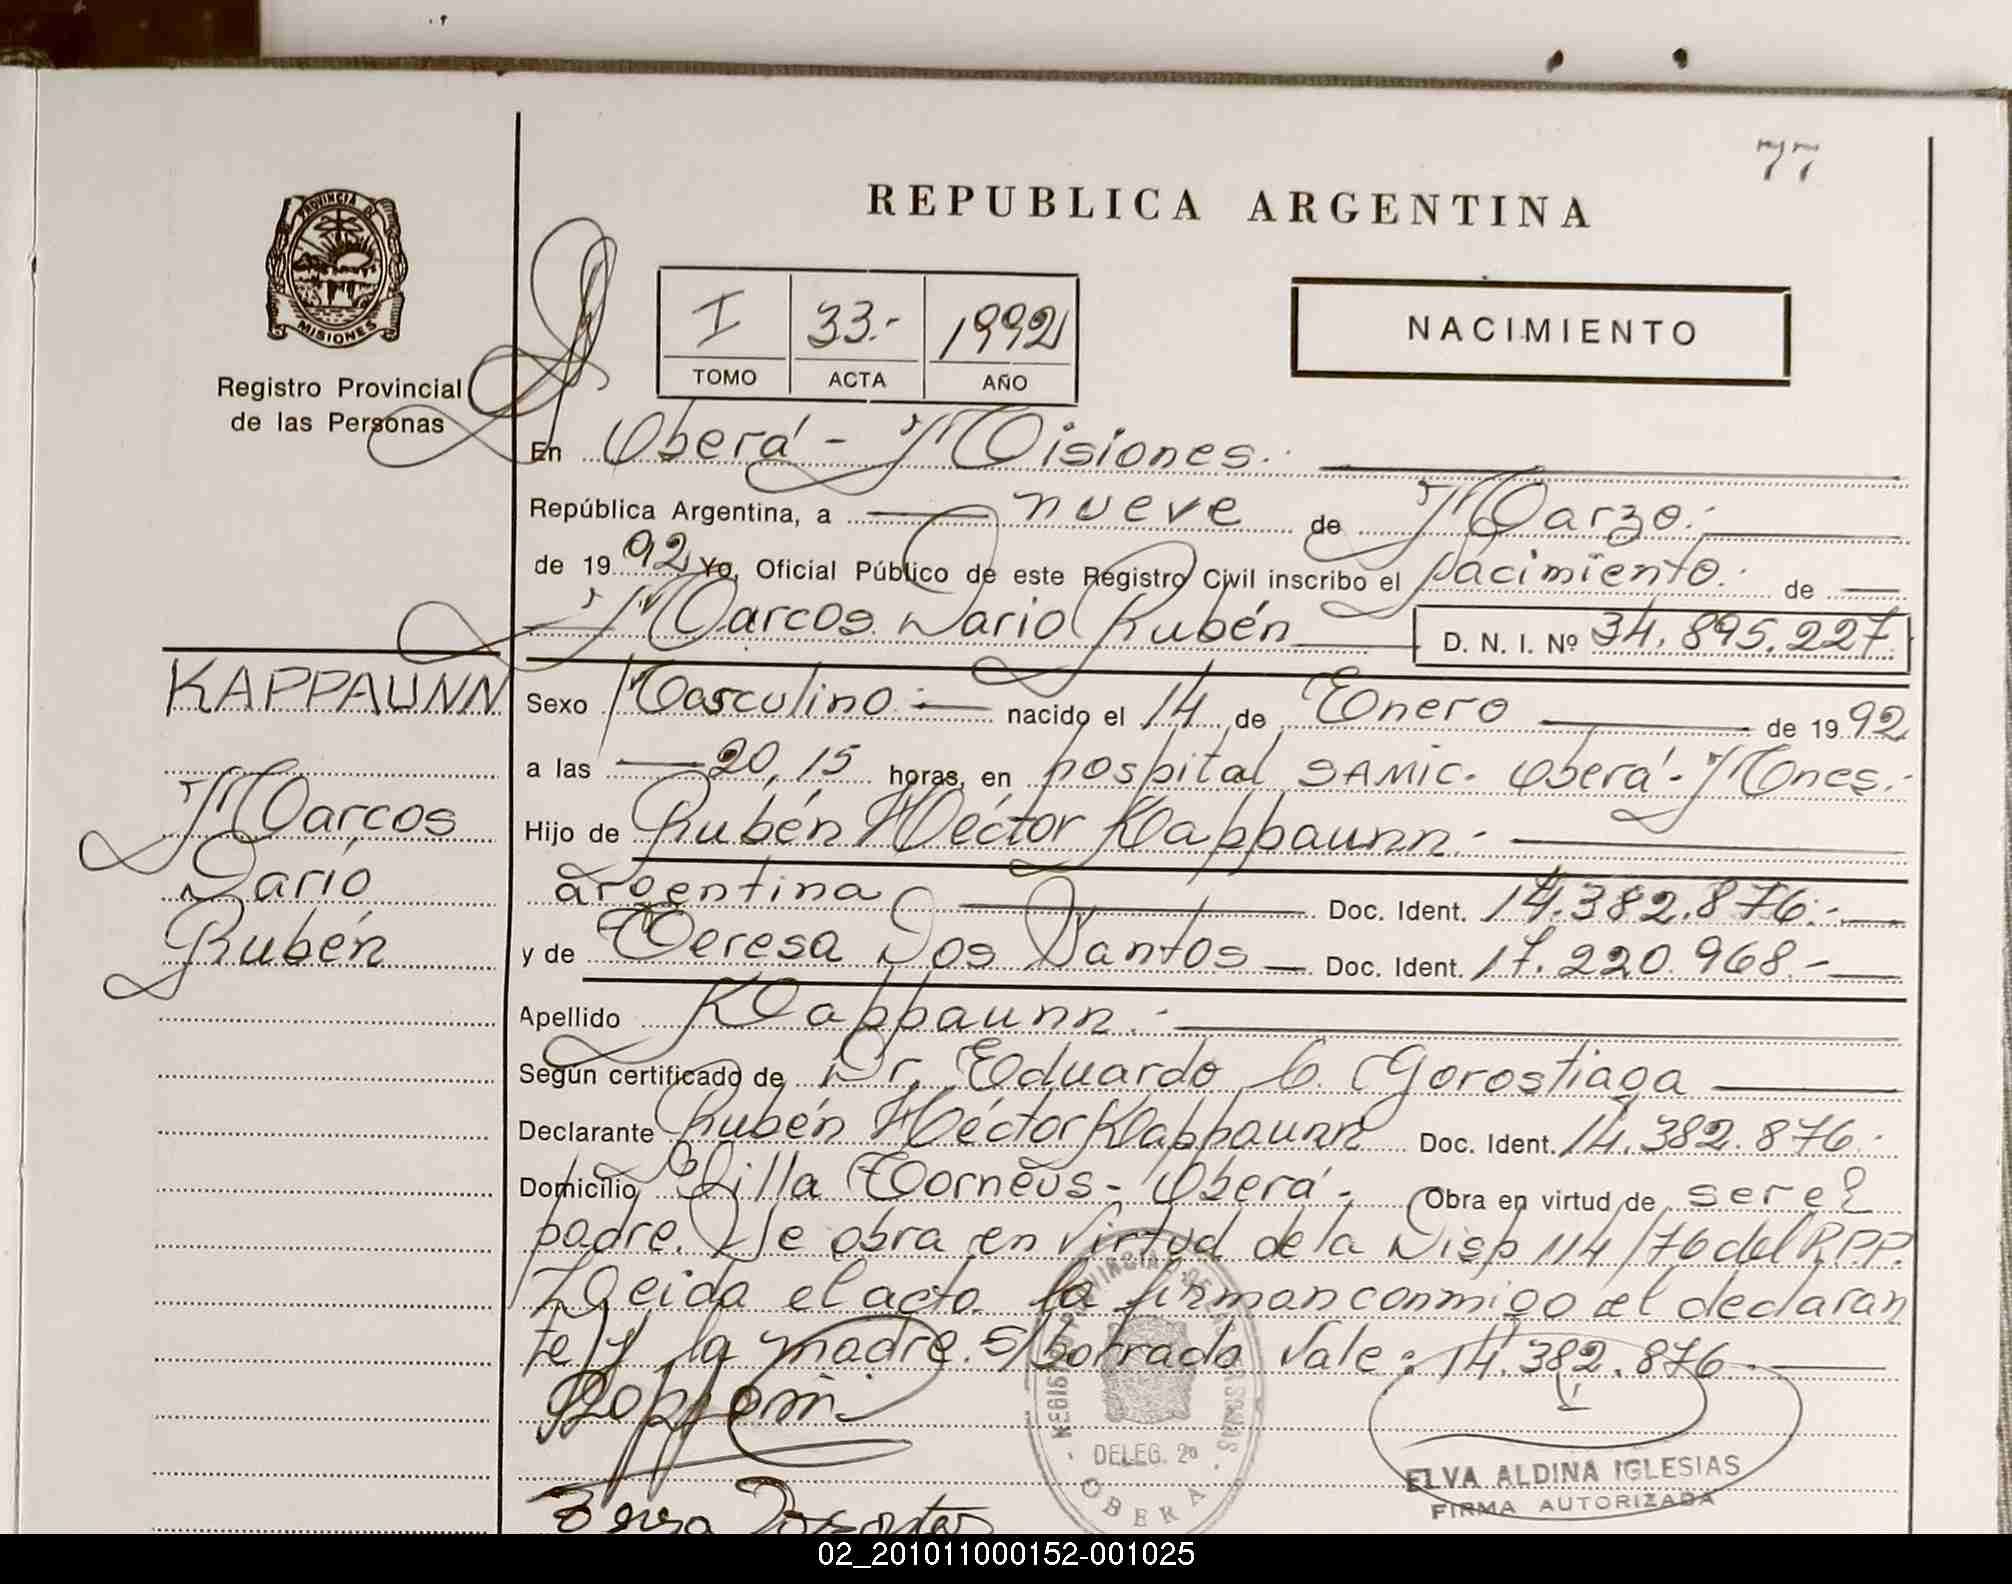 77
REPUBLICA ARGENTINA
PROVINCIA DE
MISIONES
Registro Provincial
de las Personas
I 33.- 1992
TOMO ACTA AÑO
NACIMIENTO
En Oberá - Misiones.
República Argentina, a nueve de Marzo.-
de 1992 Yo, Oficial Público de este Registro Civil inscribo el nacimiento.- de
Marcos Dario Rubén D. N. I. Nº 34.895.227
KAPPAUNN
Marcos
Darío
Rubén
Sexo Masculino.- nacido el 14 de Enero de 1992
a las 20,15 horas, en hospital SAMIC. Oberá - Mones.-
Hijo de Rubén Héctor Kappaunn.-
argentina Doc. Ident. 14.382.876.-
y de Teresa Dos Santos Doc. Ident. 17.220.968.-
Apellido Kappaunn.-
Según certificado de Dr. Eduardo C. Gorostiaga
Declarante Rubén Héctor Kappaunn Doc. Ident. 14.382.876.-
Domicilio Villa Torneus - Oberá - Obra en virtud de ser el
padre. Se obra en virtud de la Disp 114/76 del R.P.P.
Leida el acta la firman conmigo el declaran
te y la madre. S/borrado Vale: 14.382.876.-
DELEG. 2a
OBERA
ELVA ALDINA IGLESIAS
FIRMA AUTORIZADA
02_201011000152-001025